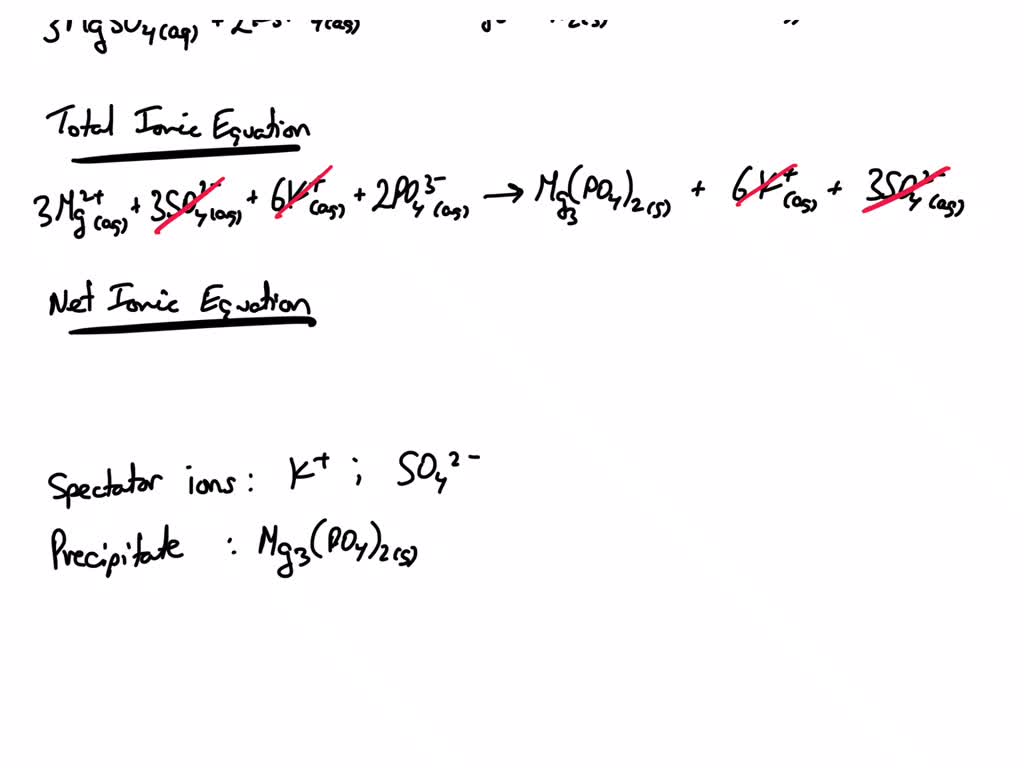 3MgSO₄(aq) + 2
Total Ionic Equation
3Mg²⁺(aq) + 3SO₄²⁻(aq) + 6K⁺(aq) + 2PO₄³⁻(aq) → Mg₃(PO₄)₂(s) + 6K⁺(aq) + 3SO₄²⁻(aq)
Net Ionic Equation
Spectator ions: K⁺ ; SO₄²⁻
Precipitate : Mg₃(PO₄)₂(s)